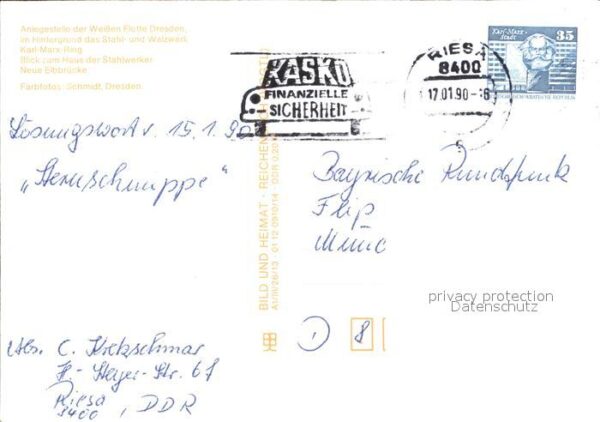 Anlegestelle der Weißen Flotte Dresden,
im Hintergrund das Stahl- und Walzwerk
Karl-Marx-Ring
Blick zum Haus der Stahlwerker
Neue Elbbrücke
Farbfotos: Schmidt, Dresden
KASKO
FINANZIELLE
SICHERHEIT
RIESA
8400
17.01.90-8
Karl-Marx-
Stadt
35
Lösungswort v. 15.1.90
„Sternschnuppe“
Bayrische Rundfunk
Flip
Münc
BILD UND HEIMAT · REICHEN
privacy protection
Datenschutz
Abs. C. Kretzschmar
Str. 67
Riesa
8400, DDR